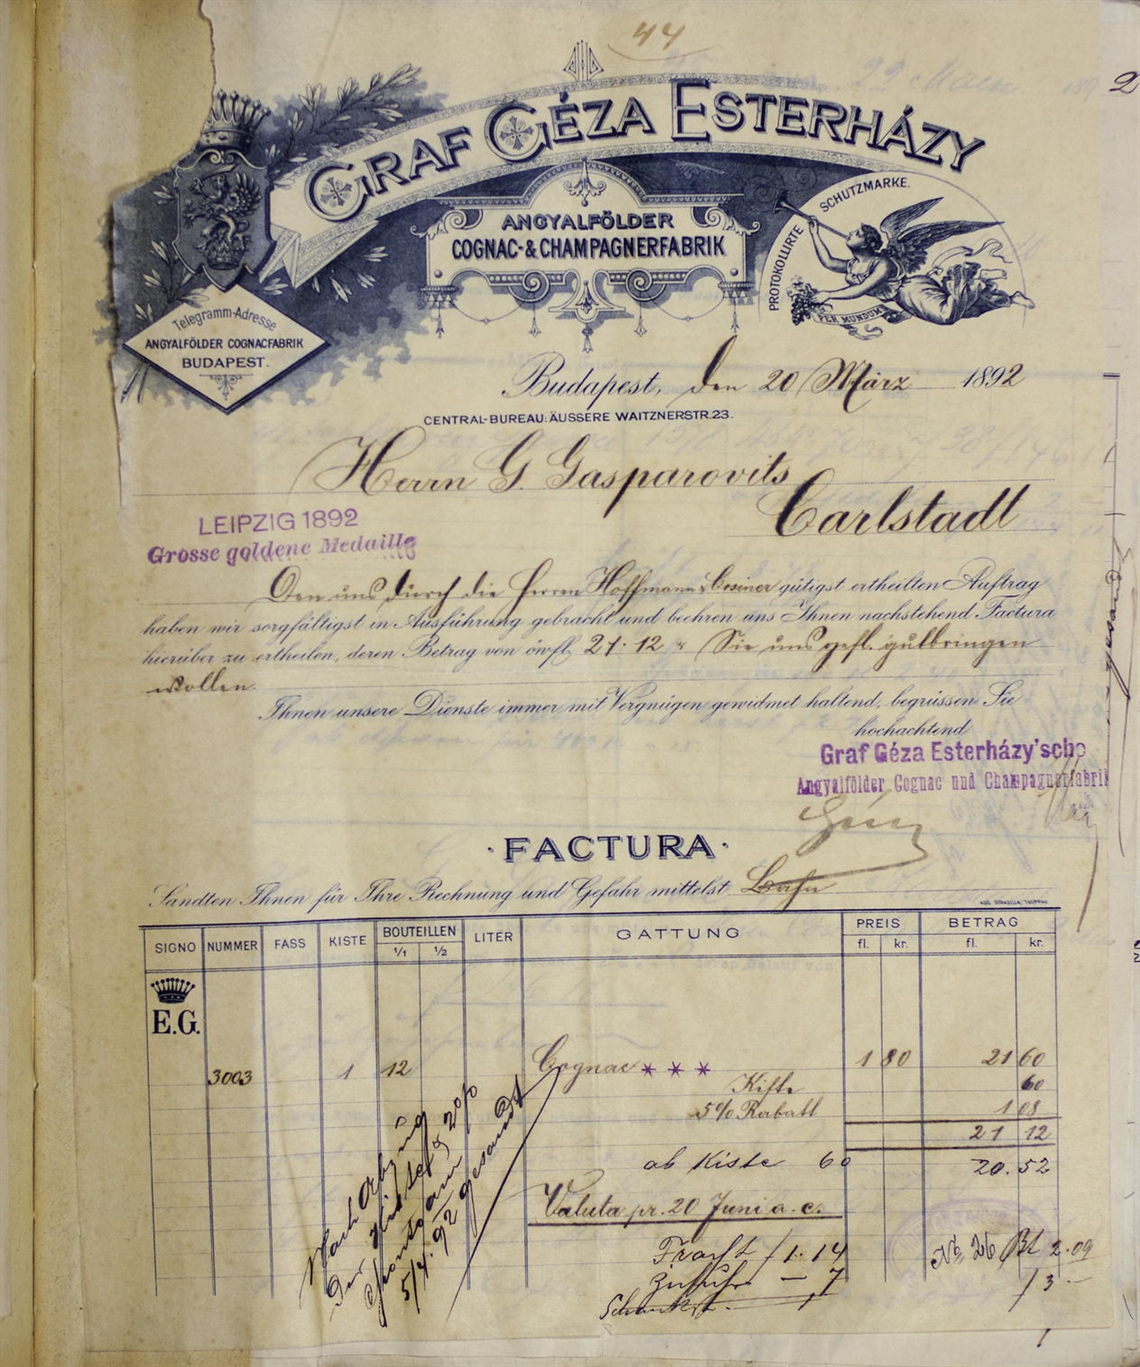 44
22
2
GRAF GÉZA ESTERHÁZY
ANGYALFÖLDER
COGNAC- & CHAMPAGNERFABRIK
PROTOKOLLIRTE SCHUTZMARKE.
PER MUNDUM
Telegramm-Adresse
ANGYALFÖLDER COGNACFABRIK
BUDAPEST.
Budapest, den 20 März 1892
CENTRAL-BUREAU: ÄUSSERE WAITZNERSTR. 23.
Herrn G. Gasparovits
Carlstadt
LEIPZIG 1892
Grosse goldene Medaille
Den uns durch die Herren Hoffmann & gütigst ertheilten Auftrag
haben wir sorgfältigst in Ausführung gebracht und beehren uns Ihnen nachstehend Factura
hierüber zu ertheilen, deren Betrag von öwfl. 21.12 Sie uns gefl. gutbringen
wollen.
Ihnen unsere Dienste immer mit Vergnügen gewidmet haltend, begrüssen Sie
hochachtend
Graf Géza Esterházy'sche
Angyalfölder Cognac und Champagnerfabrik
· FACTURA ·
Sandten Ihnen für Ihre Rechnung und Gefahr mittelst Bahn
SIGNO NUMMER FASS KISTE BOUTEILLEN 1/1 1/2 LITER GATTUNG PREIS fl. kr. BETRAG fl. kr.
E.G.
3003 1 12 Cognac * * * 1 80 21 60
Kiste 60
5% Rabatt 1 08
21 12
ab Kiste 60 20.52
Valuta pr. 20 Juni a. c.
Fracht 1.14
Zufuhr — 7
No. 26 2.09
13 —
Nach Abzug
der Kiste & 2%
5/4.92 gesandt